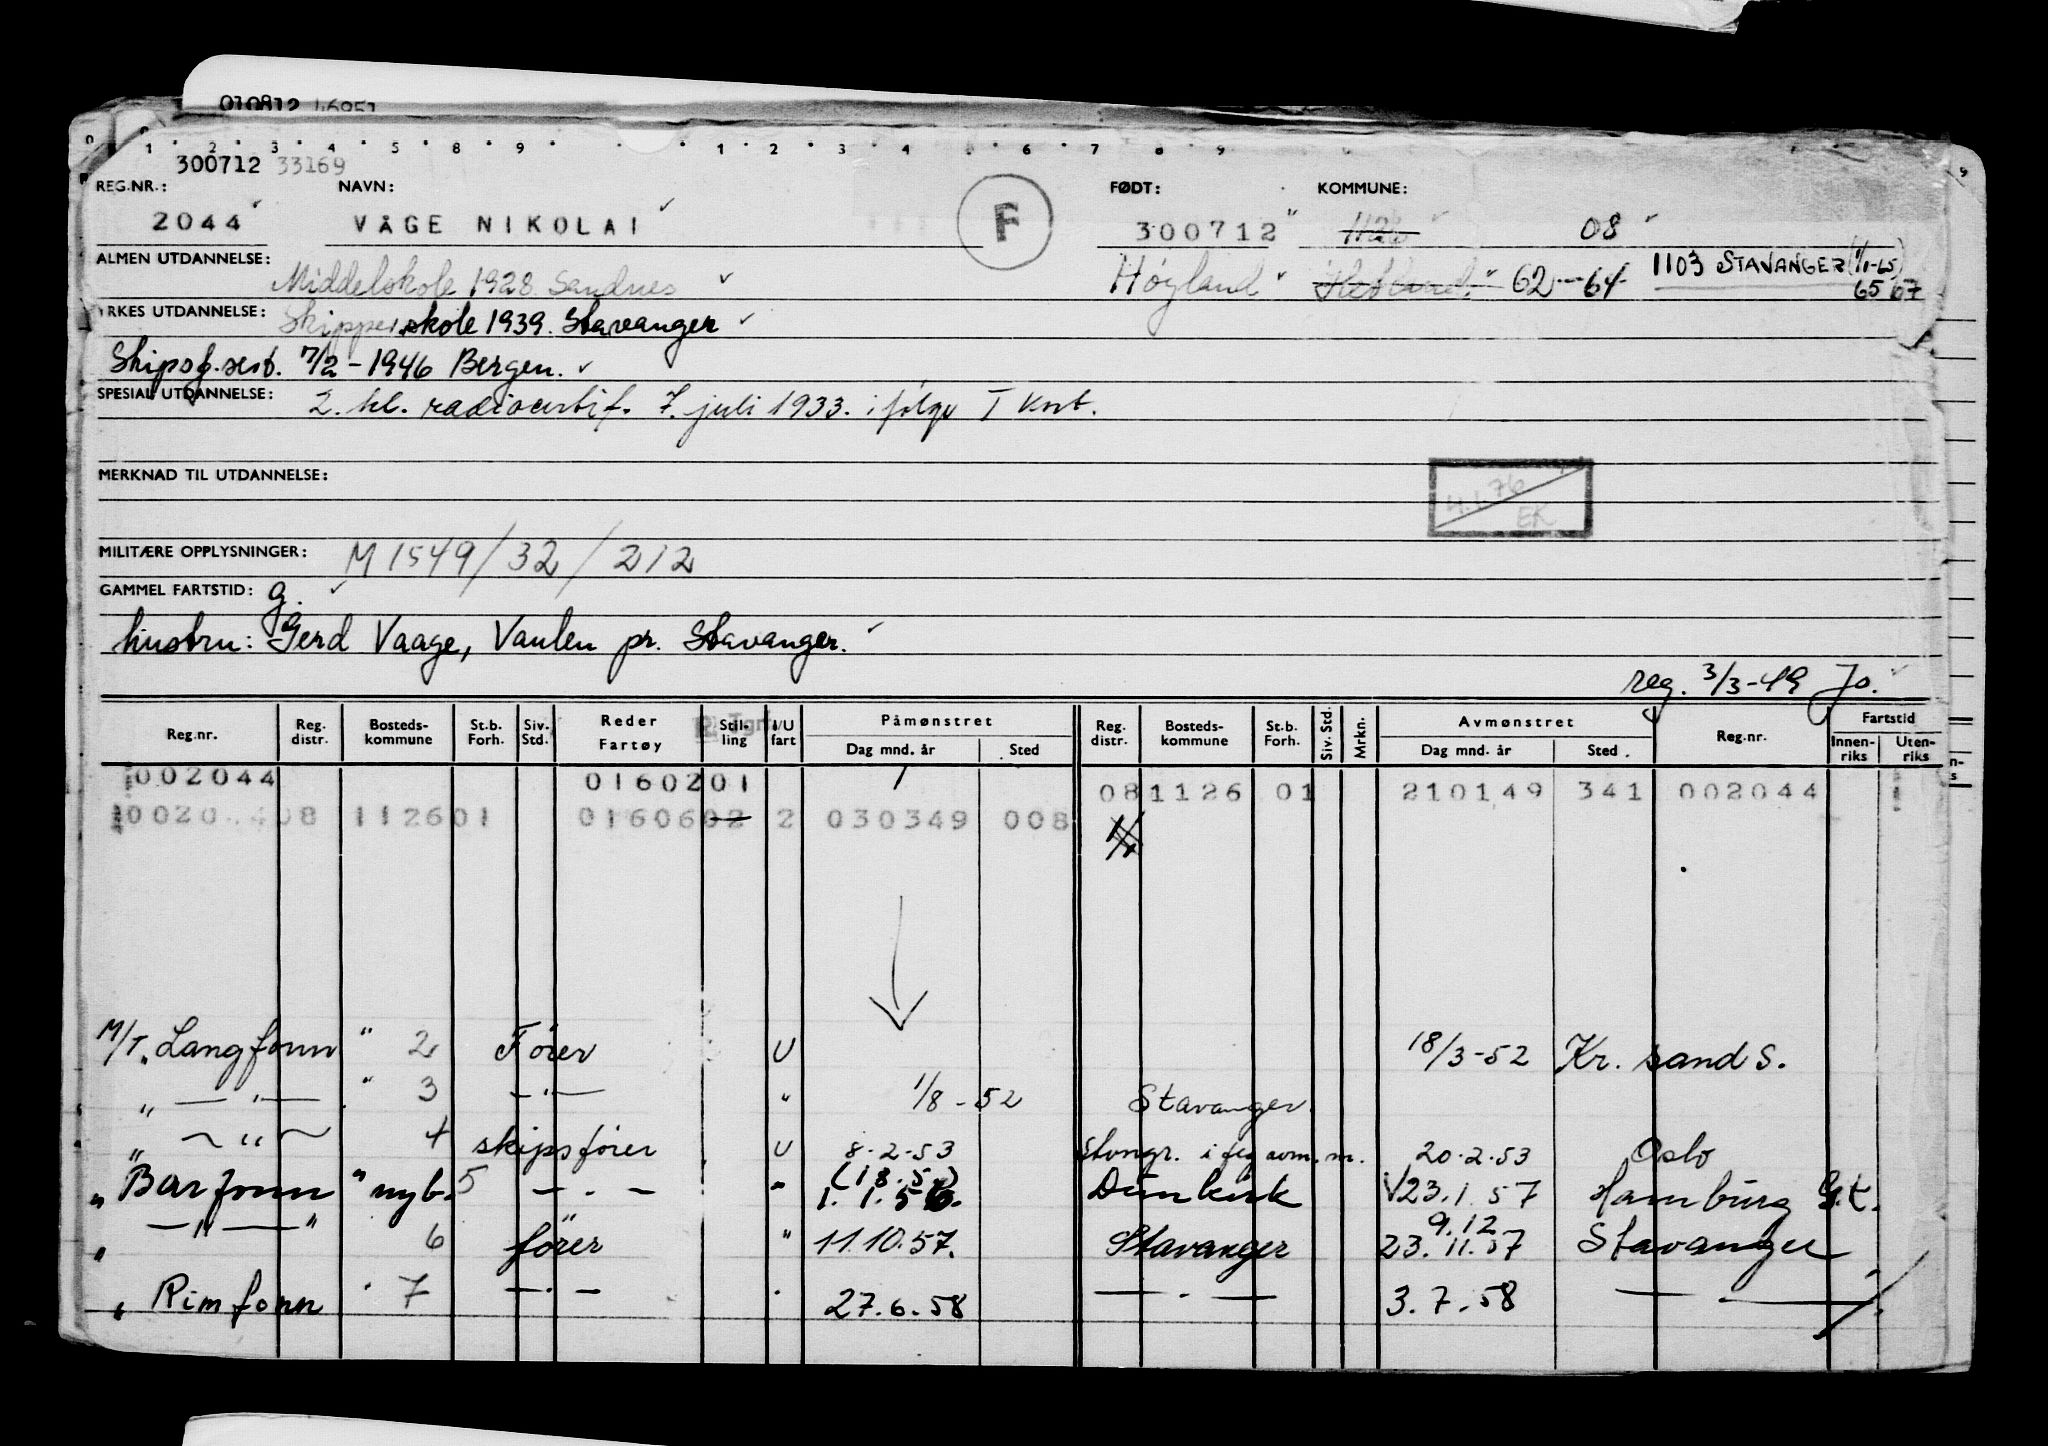 300712 33169
REG.NR.: NAVN: FØDT: KOMMUNE:
2044 VÅGE NIKOLAI F 300712 08
ALMEN UTDANNELSE: Middelskole 1928. Sandnes Høyland 62 - 64 1103 STAVANGER (1/1-65)
65 67
YRKES UTDANNELSE: Skipperskole 1939. Stavanger
Skipsf.sert. 7/2 - 1946 Bergen.
SPESIAL UTDANNELSE: 2. kl. radiocertif. 7. juli 1933. ifølge I kort.
MERKNAD TIL UTDANNELSE:
76
EK
MILITÆRE OPPLYSNINGER: M 1549/32/212
GAMMEL FARTSTID: g.
hustru: Gerd Vaage, Vaulen pr. Stavanger.
reg. 3/3-49 Jo.
Reg.nr. Reg. distr. Bosteds-kommune St.b. Forh. Siv. Std. Reder Fartøy Stil-ling I/U fart Påmønstret Dag mnd. år Sted Reg. distr. Bosteds-kommune St.b. Forh. Siv. Std. Mrkn. Avmønstret Dag mnd. år Sted Reg.nr. Fartstid Innen-riks Uten-riks
002044 0160201 081126 01 210149 341 002044
0020 408 112601 0160602 2 030349 008
M/T. Langfonn " 2 Förer U 18/3-52 Kr. sand S.
" — " — " 3 — " — " 1/8 - 52 Stavanger.
" — " — 4 skipsförer U 8.2-53 Stvngr. 20.2.53 Oslo
" Barfonn " nyb. 5 — . — " 1.1.56. Dünkirk 23.1.57 Hamburg G.t.
" — " — " 6 förer " 11.10.57. Stavanger 23.11.57 9.12 Stavanger
" Rimfonn " 7 — . — " 27.6.58 — . — 3.7.58 — . —